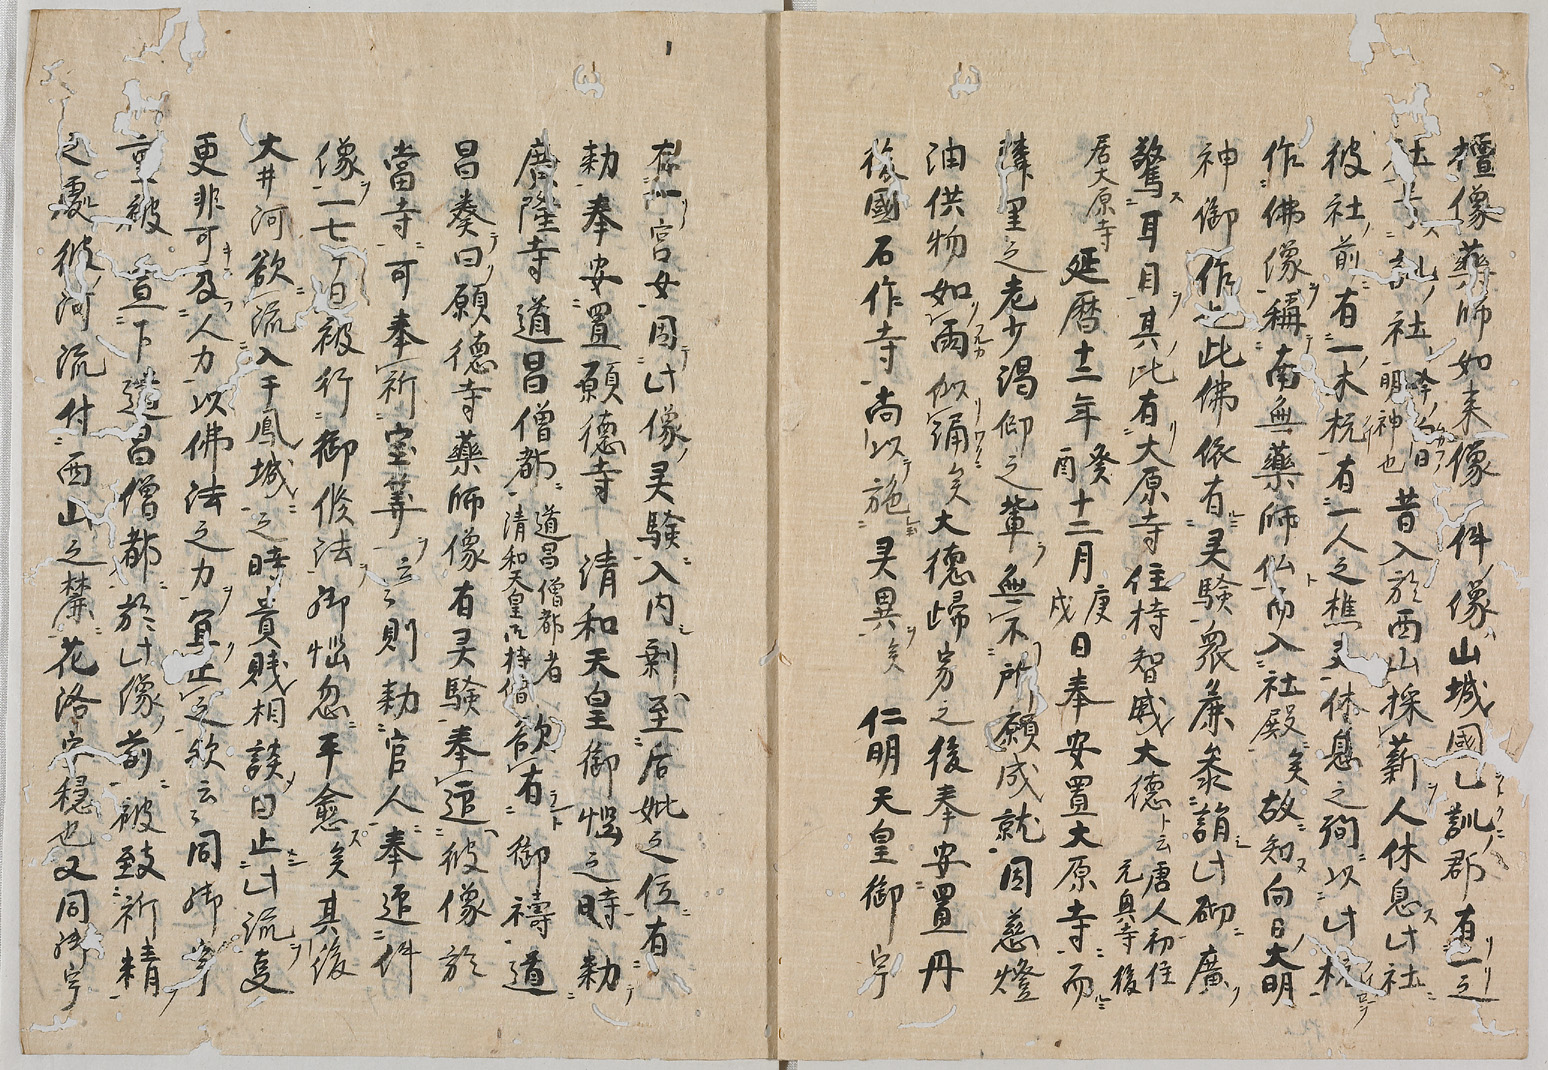 檀像薬師如来像 件像山城國乙訓郡有一之
社号乙訓社明神也今向日昔入於西山採薪人休息此社
彼社前有一木杭有一人之樵夫休息之殉以此杭
作佛像稱南無薬師仏而入社殿矣故知向日大明
神御作也此佛依有灵驗衆庶参詣此砌廣
驚耳目其比有大原寺住持智威大德云唐人初住元興寺後
居大原寺延暦十二年癸酉十二月庚戌日奉安置大原寺而
隣里之老少渇仰之輩無不所願成就因慈燈
油供物如雨似涌矣大德歸寂之後奉安置丹
後國石作寺尚以施灵異矣 仁明天皇御宇
在一宮女因此像灵驗入内剰至后妣之位有
勅奉安置願德寺 清和天皇御惱之時勅
廣隆寺道昌僧都道昌僧都者清和天皇御持僧欲有御禱道
昌奏曰願德寺薬師像有灵驗奉迎彼像於
當寺可奉祈宝筭云々則勅官人奉迎件
像一七ケ日被行御修法御惱忽平愈矣其後
大井河欲流入于鳳城之時貴賤相談曰止此流支
更非可及人力以佛法之力宜止之歟云々同御宇
重被宣下道昌僧都於此像前被致祈精
之處彼河流付西山之麓花洛安穏也又同御宇